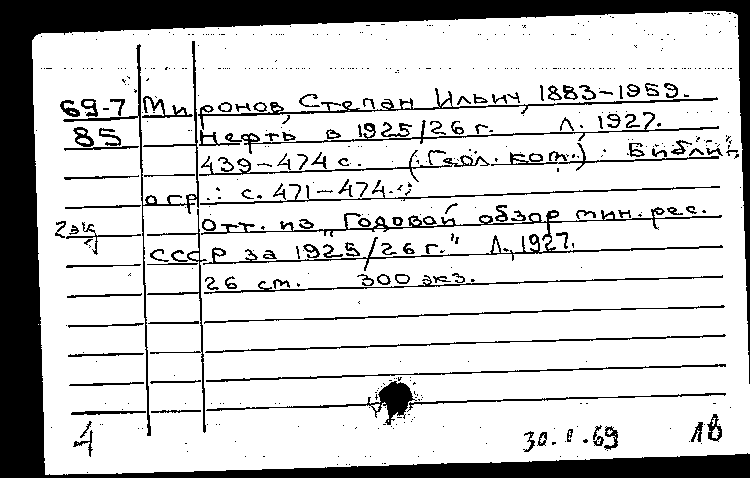 69-7 Миронов, Степан Ильич, 1883-1959.
85 Нефть в 1925/26 г. Л. 1927.
439-474 с. (Геол. ком.). Библи-
огр.: с. 471-474.
2 экз Отт. из „Годовой обзор мин. рес.
СССР за 1925/26 г." Л., 1927.
26 см. 300 экз.
4 30. I. 69 18